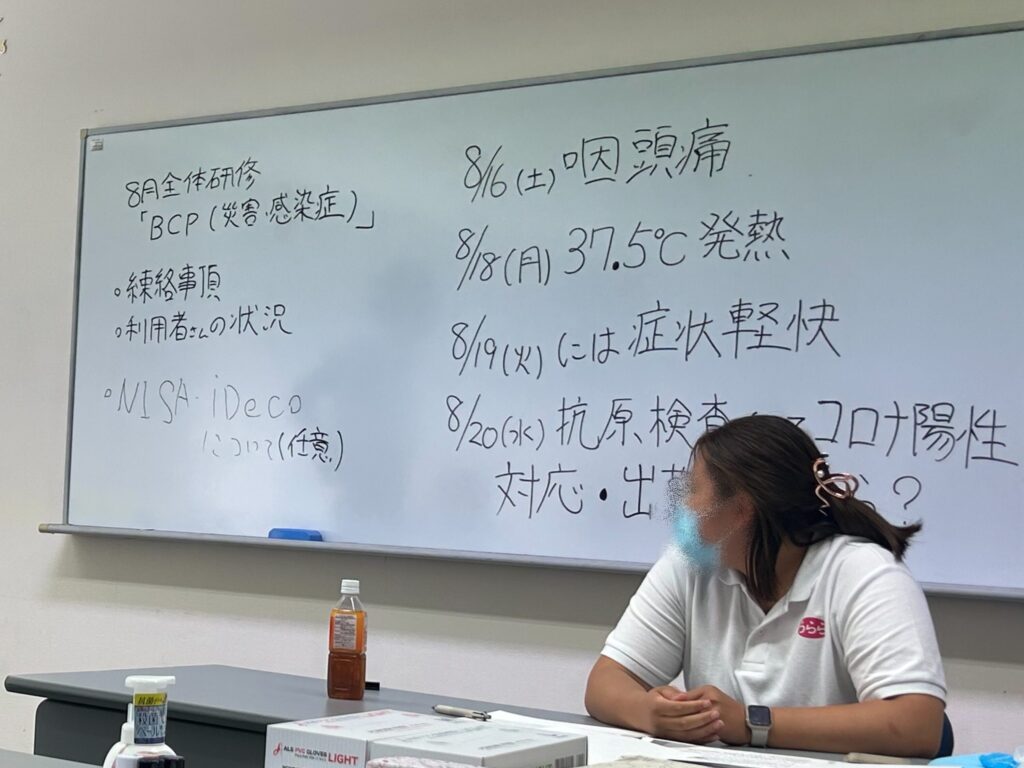 8月全体研修
「BCP (災害・感染症)」
。練絡事項
。利用者さんの状況
。NISA・iDeco
について(任意)
8/16(土) 咽頭痛
8/18(月) 37.5℃ 発熱
8/19(火)には症状軽快
8/20(水) 抗原検査 コロナ陽性
対応・出 ?
うらら
ALE PVC GLOVES
LIGHT